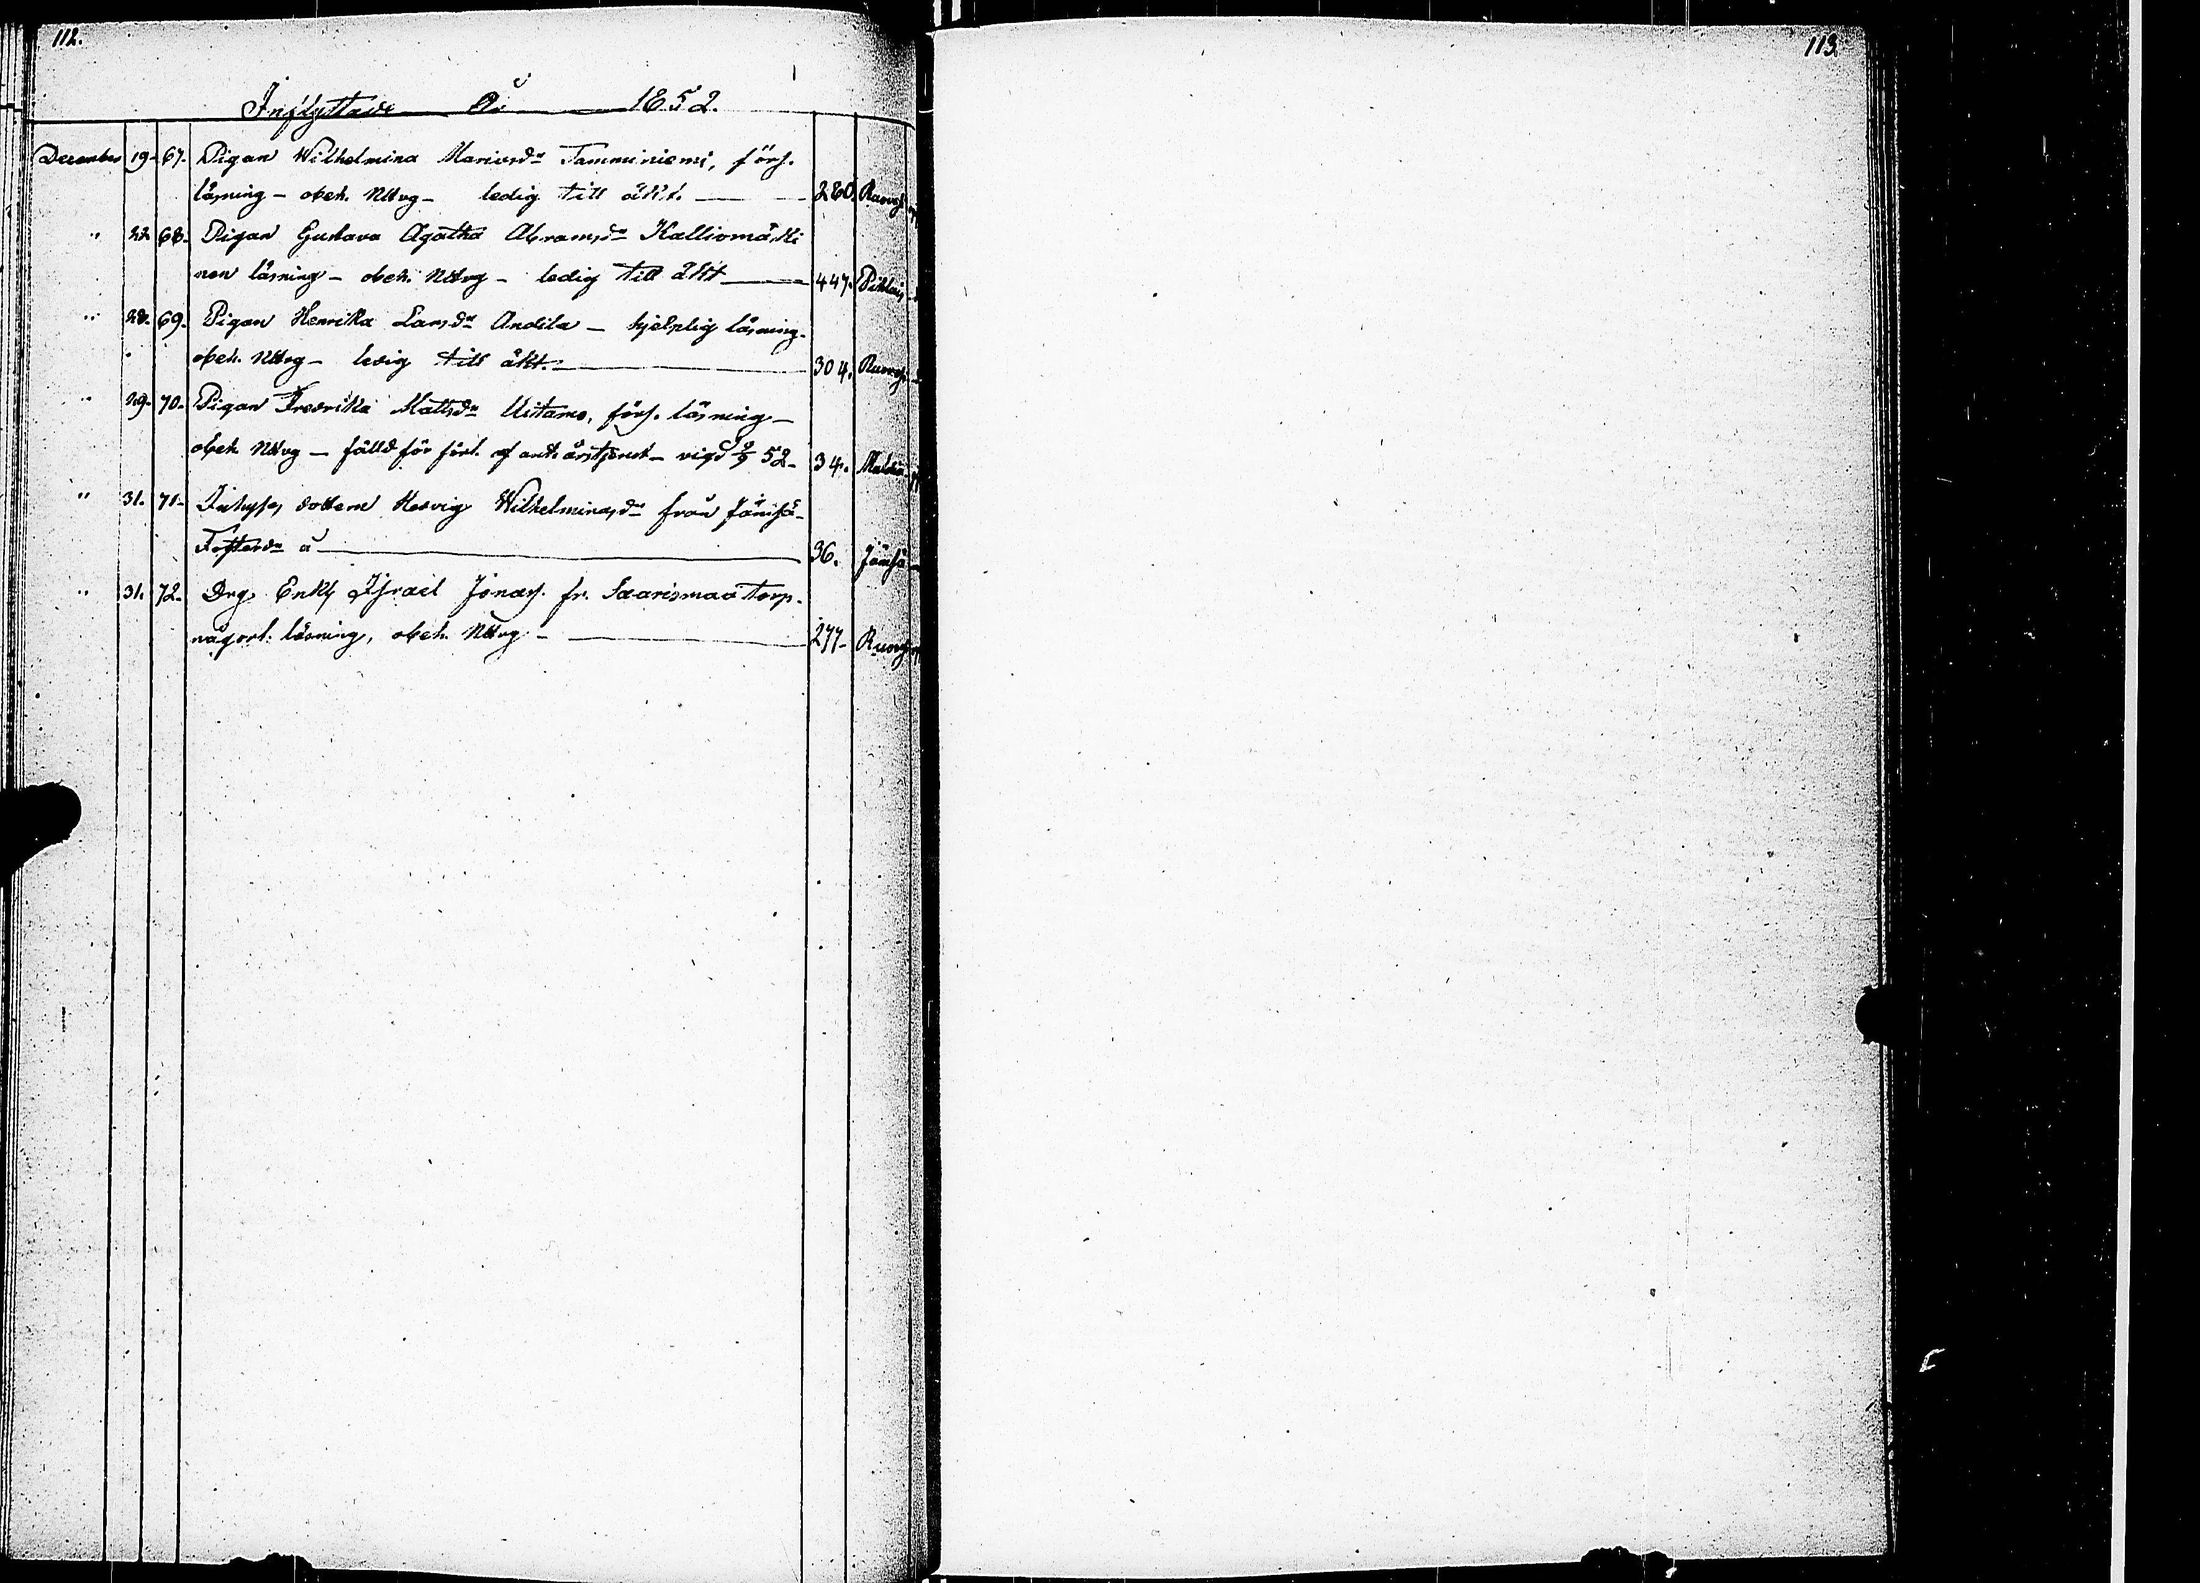 112.
113.
Inflyttade År 1852.
December 19. 67. Pigan Wilhelmina Mariasdr Tamminiemi, förs.
läsning - obeh. Nttvg - ledig till äkt. 280. Ruoves
" 22. 68. Pigan Gustava Agatha Abramsdr Kalliomäki
nen läsning - obeh. Nttvg - ledig till äkt 447. Pihlais
" 28. 69. Pigan Henrika Larsdr Andila - hjelplig läsning.
obeh. Nttvg - ledig till äkt. 304. Ruoves
" 29. 70. Pigan Fredrika Mattsdr Uitamo, förs. läsning -
obeh. Nttvg - fälld för förl. af ant. årstjenst - vigd 52. 34.
" 31. 71. Inhyses dottern Hedvig Wilhelminasdr från Jämsä -
Fosterdr å 36. Jämsä
" 31. 72. Drg. Enkl. Israel Jonass. fr. Saarismaa torp.
någorl. läsning, obeh. Nttvg - 277. Ruoves